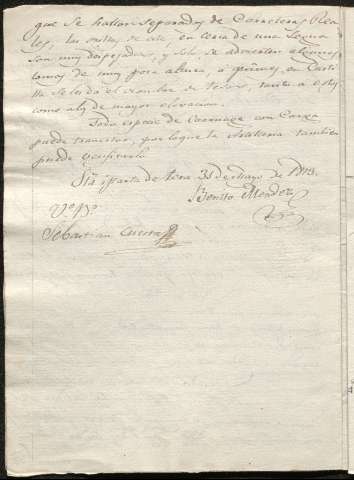 que se hallan separados de Carreteras Rea-
les, las orillas de este en cerca de una legua
son muy despejadas, y solo se advierten algunas
lomas de muy poca altura, a quienes en Casti-
lla se les da el nombre de Tesos, tanto a estos
como a los de mayor elevacion.
Toda especie de Carruage con Carga
puede transitar, por lo que la Artilleria tambien
puede
Sta Marta de Tera 31 de Mayo de 1813.
Benito Mendez
Vo. Bo.
Sebastian Cuesta